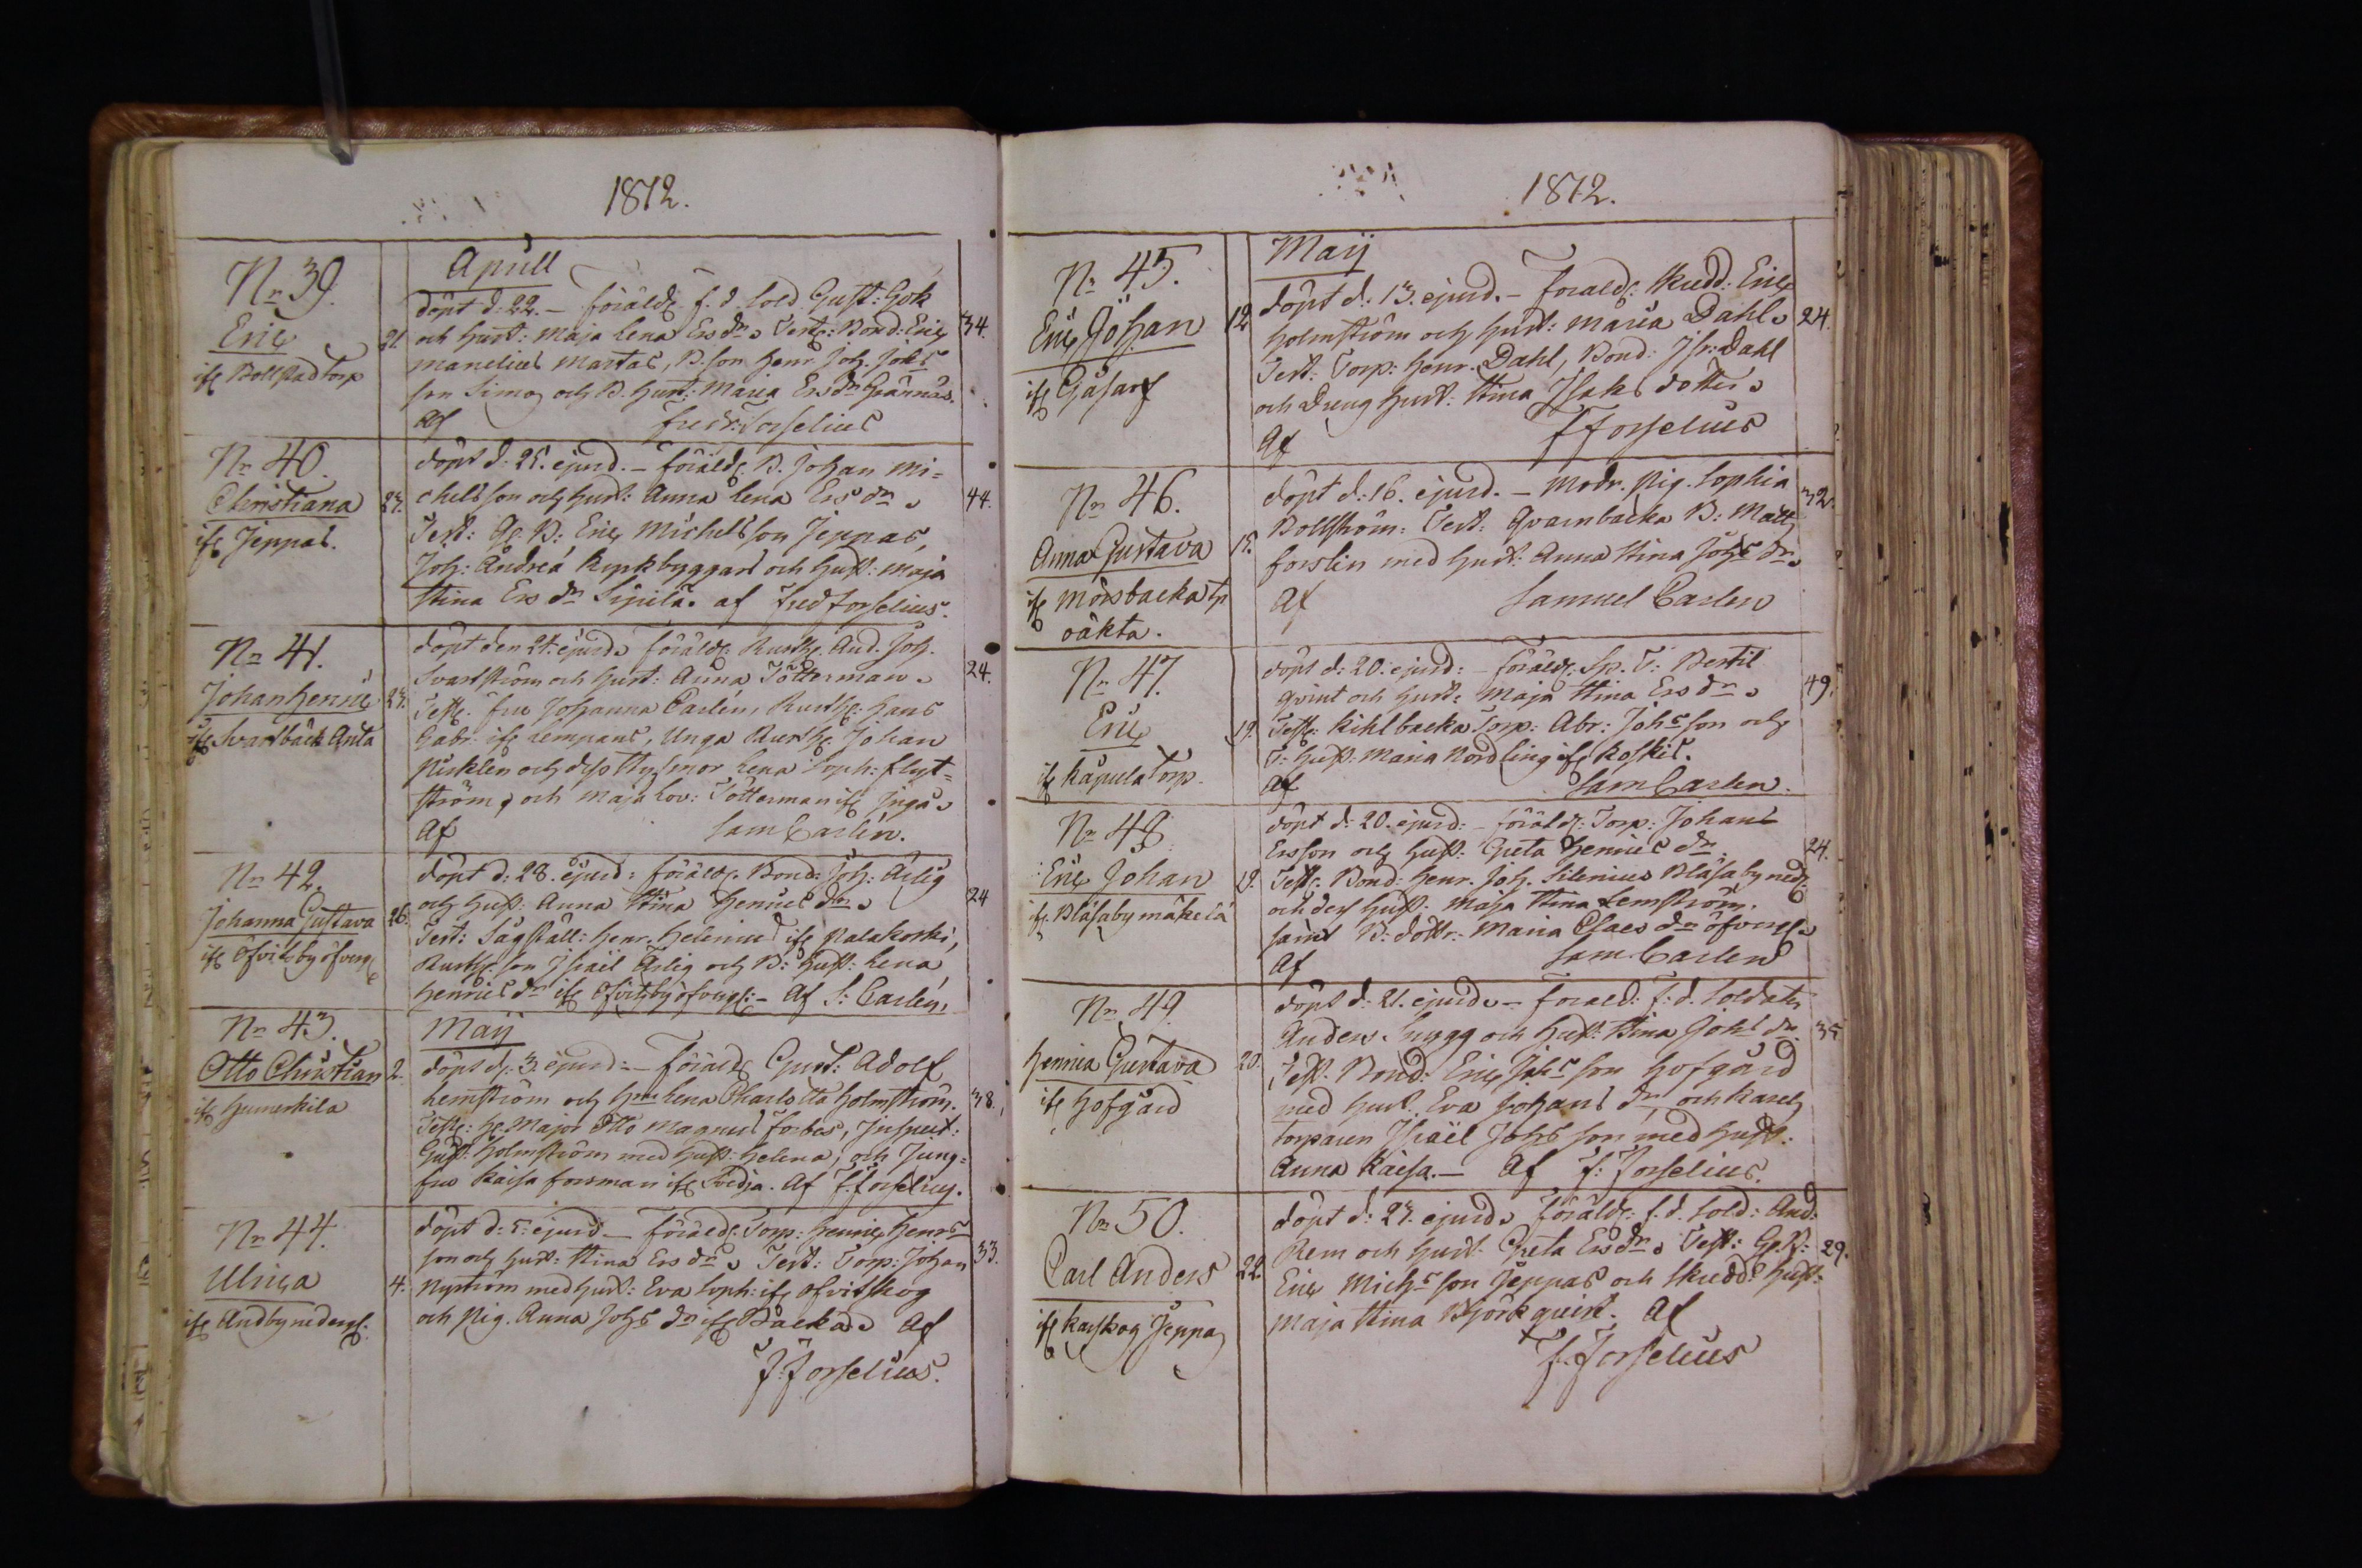 1812.
Aprill
Nr 39.
Eric
ifr Bollstad Torp
21
döpt d: 22. – föräldr f. d. Sold Gust: Gök
och Hust: Maja Lena Ersdr. Test: Bond: Eric
Manelius Martas, B. son Henr Joh: Johs
son Simos och B. Hust: Maria Ersdr Grännäs.
Af Fredr: Forselius
34.
Nr 40.
Christiana
ifr Jeppas.
23.
döpt d. 25. ejusd. – föräldr. B. Johan Mi=
chelsson och Hust: Anna Lena Ers dr.
Test: B: Eric Michelsson Jeppas,
Joh: Andreä Kyrkbyggars och Hust: Maja
Stina Ers dr Sipilä. af Fred Forselius.
44.
Nr 41.
Johan Henric
ifr Svartbäck Anta
23.
döpt den 24. ejusd. föräldr. Rusth. And. Joh.
Svartström och Hust: Anna Tötterman.
Test. fru Johanna Carlén, Rusth: Hans
Gabr: ifr Lempans, Unga Rusth. Johan
och dess Lena Soph: Flyt=
ström, och Maja Lov: Tötterman ifr Juga.
Af Sam Carlén.
24.
Nr 42.
Johanna Gustava
ifr Ofvitsby öfverg
26.
döpt d: 28. ejusd: föräldr. Bond: Joh: Ärlig
och Hust: Anna Stina Henrics dr.
Test: Sågställ: Henr. Helenius ifr Palakoski,
Rusth: son Israel Ärlig och B: Hust: Lena
Henrics dr ifr Ofvitsby öfvergl: – Af S: Carlén,
24
Maij
Nr 43.
Otto Christian
ifr Humerkila
2.
döpt d: 3 ejusd: – föräldr Gust: Adolf
Lemström och Lena Charlotta Holmström.
Test: Hr Major Otto Magnus Forbes, Inspect:
Gust: Holmström med Hust: Helena, och Jung=
fru Kaisa Forsman ifr Fredja. Af F. Forselius.
38.
Nr 44.
Ulrica
ifr Andby nedergl.
4.
döpt d: 5: ejusd – föräldr. Torp: Henric Henrs
son och Hust: Stina Ers dr. Test: Torp: Johan
Nyström med Hust: Eva Soph: ifr Ofvitskog
och Pig. Anna Johs dr ifr Backas. Af
F: Forselius.
33.
1812.
Maij
Nr 45.
Eric Johan
ifr Gåsarf
12
döpt d: 13. ejusd. – föräldr. Skredd: Eric
Holmström och Hust: Maria Dahl.
Test: Torp: Henr. Dahl, Bond: Isr: Dahl
och Dreng Hust: Stina Isaks dotter.
Af F Forselius
24.
Nr 46.
Anna Gustava
ifr Mörsbacka tp
oäkta.
15.
döpt d: 16. ejusd. – Modr. Pig. Sophia
Bollström: Test: Qvarnbacka B: Matts
Forslin med Hust: Anna Stina Johs dr.
Af Samuel Carlen
32.
Nr 47.
Eric
ifr Käpula Torp.
19.
döpt d: 20. ejusd: – föräldr: Sp. T: Bertil
Qvint och Hust: Maja Stina Ers dr.
Test: Kihlbacka Torp: Abr: Johs son och
T: Hust: Maria Nordling ifr Koskis.
Af Sam Carlen.
49.
Nr 48
Eric Johan
ifr. Blåsaby mäkelä
19.
döpt d: 20. ejusd: – föräldr: Torp: Johan
Ersson och Hust: Greta Henrics dr.
Test. Bond: Henr. Joh. Silenius Blåsaby nedr
och dess Hust: Maja Stina Lemström.
samt B: dottr: Maria Claes dr öfvergl.
Af Sam Carlen
24.
Nr 49
Henrica Gustava
ifr Hofgård
20.
döpt d: 21. ejusd. – förald: f: d. Soldaten
Anders Snygg och Hust: Stina Johs dr.
Test. Bond: Eric Johs son Hofgård
med Hust. Eva Johans dr och
torparen Israël Johs son med Hust:
Anna Kaisa. – Af F: Forselius.
35
Nr 50.
Carl Anders
ifr Karskog Jeppas
22.
döpt d: 23. ejusd. föräldr. f. d. Sold: And:
Rem och Hust. Greta Ersdr. Test: B:
Eric Michs son Jeppas och Skredd: Hust:
Maja Stina Björkqvist. Af
F. Forselius
29.